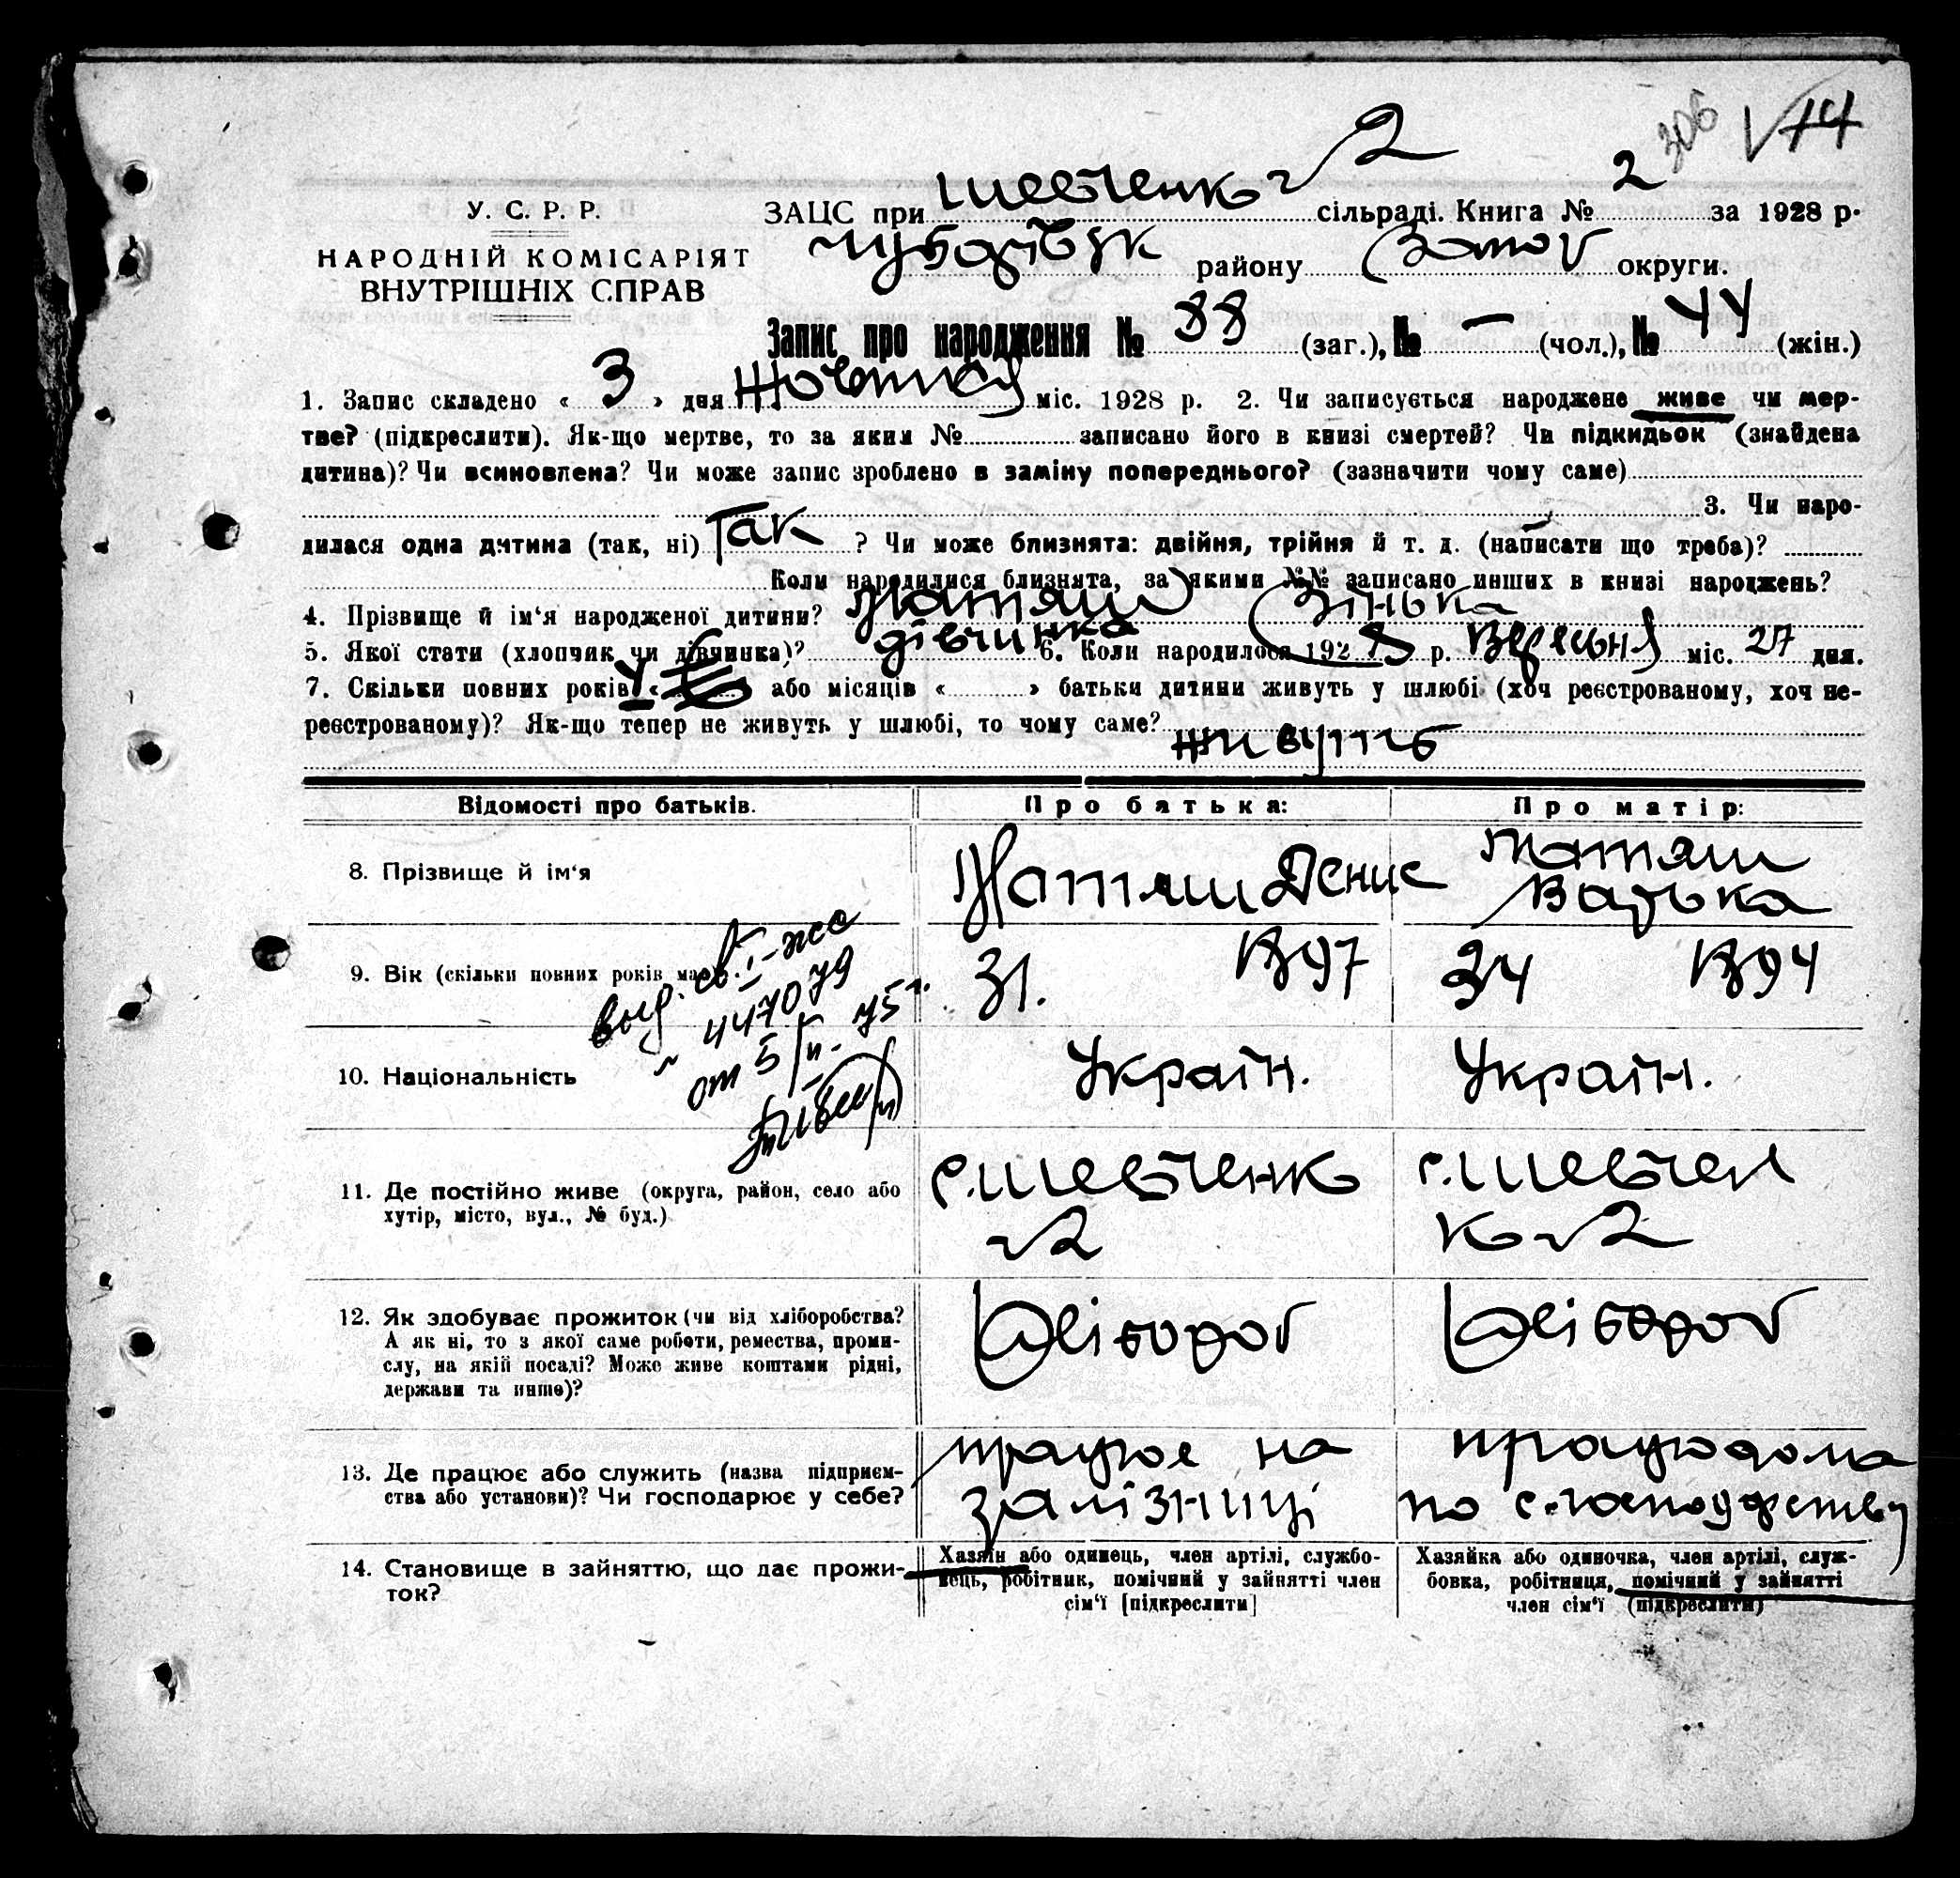 306 √ 74
У. С. Р. Р.
НАРОДНІЙ КОМІСАРІЯТ
ВНУТРІШНІХ СПРАВ
ЗАЦС при Шевченк №2 сільраді. Книга № 2 за 1928 р.
району округи.
Запис про народження № 88 (заг.), № — (чол.), № 44 (жін.)
1. Запис складено « 3 » дня Жовтня міс. 1928 р. 2. Чи записується народжене живе чи мер-
тве? (підкреслити). Як-що мертве, то за яким № записано його в книзі смертей? Чи підкидьок (знайдена
дитина)? Чи всиновлена? Чи може запис зроблено в заміну попереднього? (зазначити чому саме)
3. Чи наро-
дилася одна дитина (так, ні) Так ? Чи може близнята: двійня, трійня й т. д. (написати що треба)?
Коли народилися близнята, за якими №№ записано инших в книзі народжень?
4. Прізвище й ім‘я народженої дитини? Матяш Зінька
5. Якої стати (хлопчик чи дівчинка)? дівчинка 6. Коли народилося 1928 р. Вересня міс. 27 дня.
7. Скільки повних років « » або місяців « » батьки дитини живуть у шлюбі (хоч реєстрованому, хоч не-
реєстрованому)? Як-що тепер не живуть у шлюбі, то чому саме?
живуть
Відомості про батьків. Про батька: Про матір:
8. Прізвище й ім‘я Матяш Денис Матяш
Варька
9. Вік (скільки повних років має). 31. 1897 34 1894
выд. св. I-жс
№ 447079
от 5/II-75 г.
10. Національність Україн. Україн.
11. Де постійно живе (округа, район, село або
хутір, місто, вул., № буд.)
с. Шевченк
№2
с. Шевчен
к №2
12. Як здобуває прожиток (чи від хліборобства?
А як ні, то з якої саме роботи, ремества, проми-
слу, на якій посаді? Може живе коштами рідні,
держави та инше)?
Хлібороб Хлібороб
13. Де працює або служить (назва підприєм-
ства або установи)? Чи господарює у себе?
працює на
залізниці
дома
по с.господрству
14. Становище в зайняттю, що дає прожи-
ток?
Хазяїн або одинець, член артілі, службо-
вець, робітник, помічний у зайнятті член
сім‘ї [підкреслити]
Хазяйка або одиночка, член артілі, служ-
бовка, робітниця, помічний у зайнятті
член сім‘ї (підкреслити)